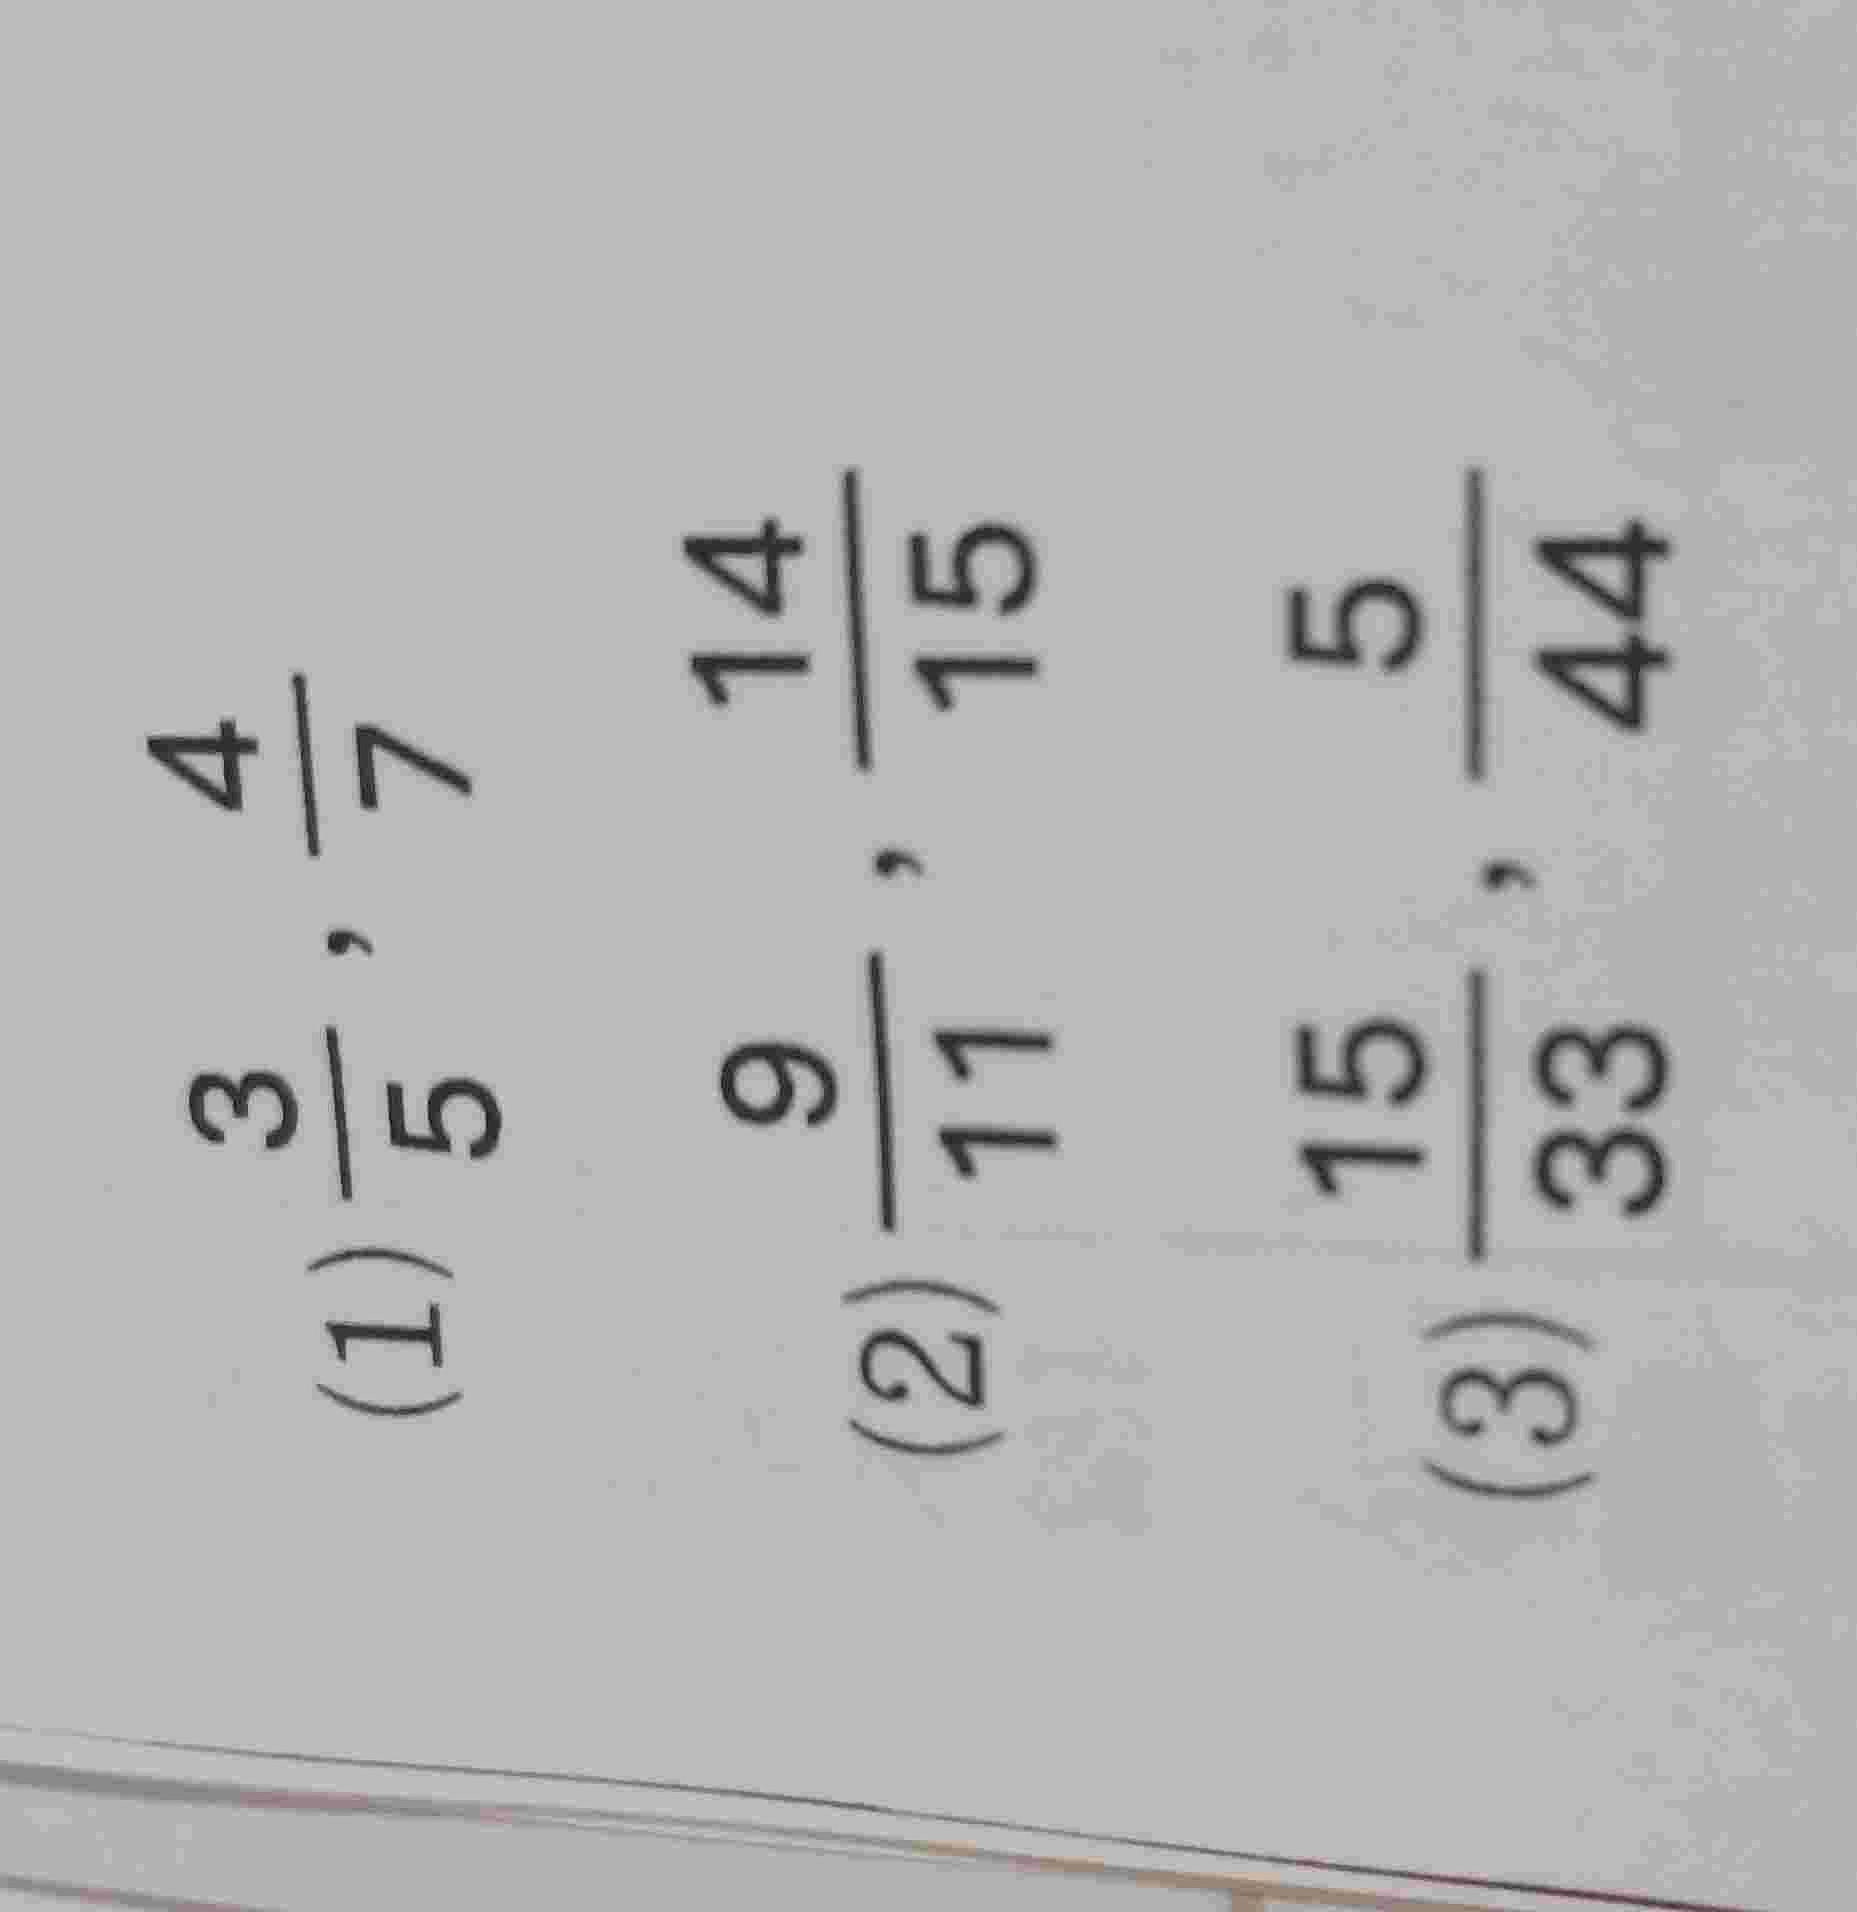 (1) 3/5 , 4/7
(2) 9/11 , 14/15
(3) 15/33 , 5/44